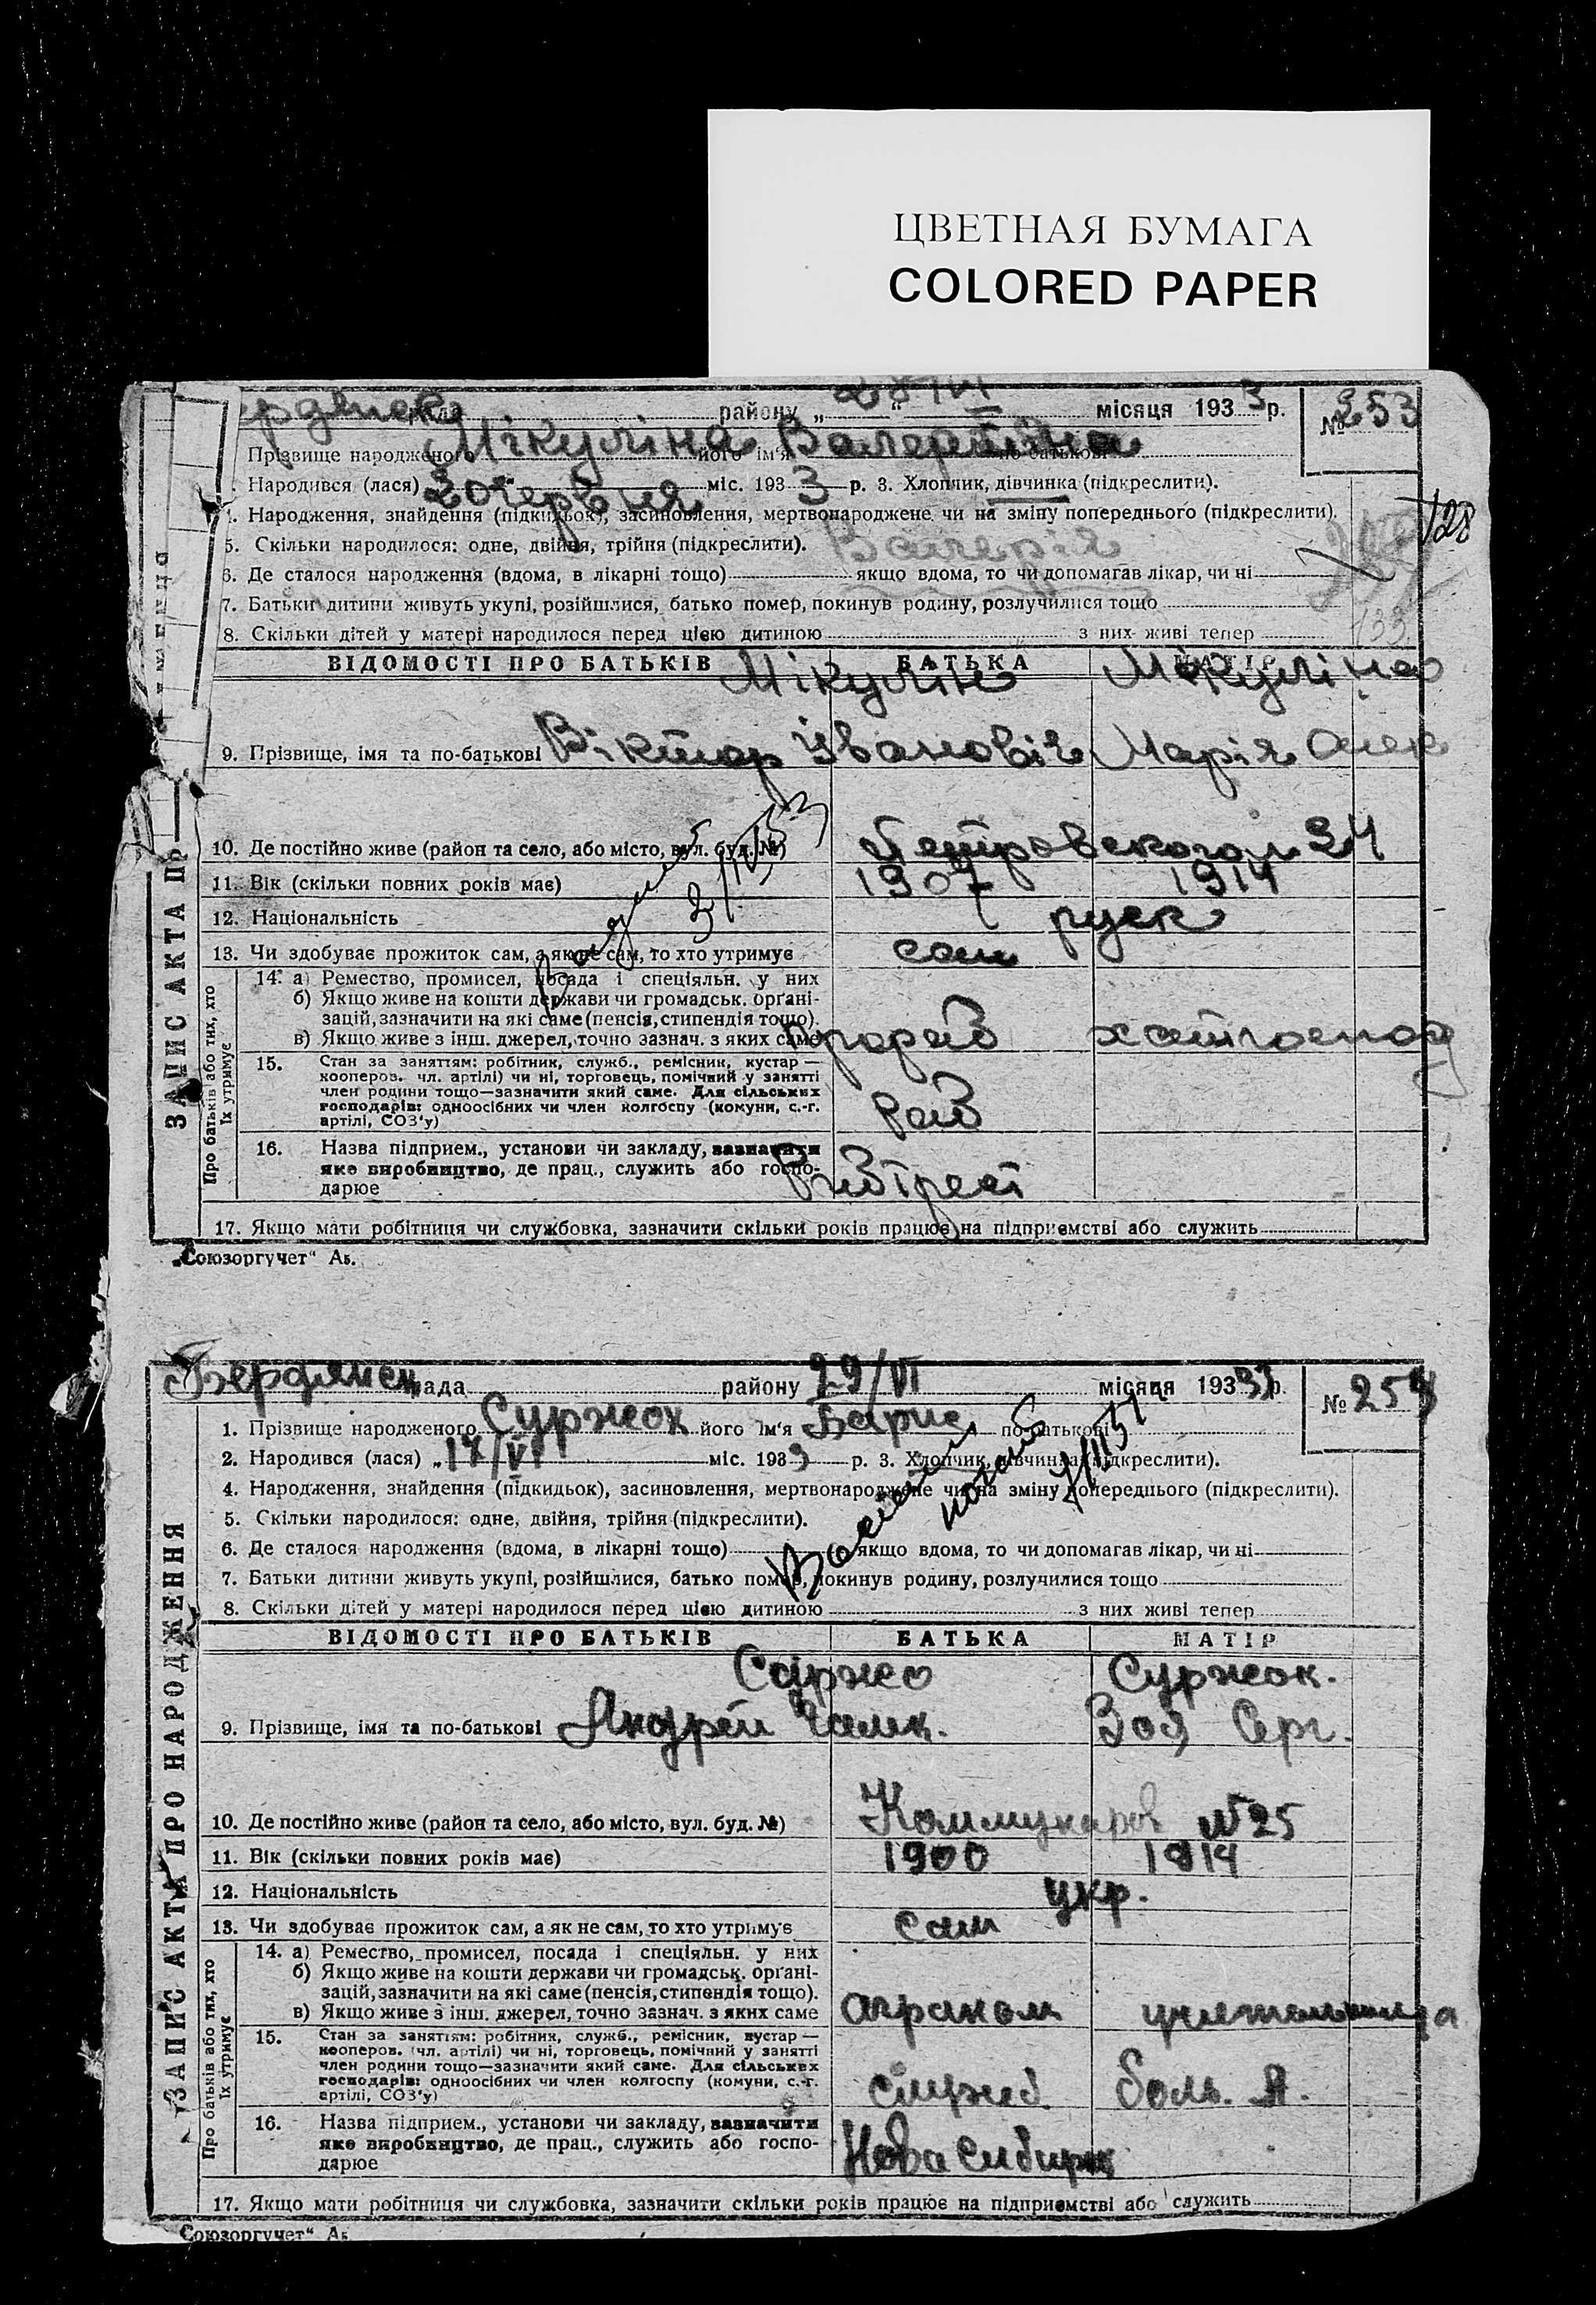 ЦВЕТНАЯ БУМАГА
COLORED PAPER
рада району „ 28/VI “ місяця 1933 р. № 253
Прізвище народженого Мікуліна його ім'я Валерятіна по батькові
Народився (лася) 20 червня міс. 1933 р. 3. Хлопчик, дівчинка (підкреслити).
4. Народження, знайдення (підкидьок), засиновлення, мертвонароджене чи на зміну попереднього (підкреслити).
128
5. Скільки народилося: одне, двійня, трійня (підкреслити). Валерія
6. Де сталося народження (вдома, в лікарні тощо) якщо вдома, то чи допомагав лікар, чи ні
7. Батьки дитини живуть укупі, розійшлися, батько помер, покинув родину, розлучилися тощо
8. Скільки дітей у матері народилося перед цією дитиною з них живі тепер
133
ВІДОМОСТІ ПРО БАТЬКІВ БАТЬКА МАТІР
Мікулін Мікуліна
9. Прізвище, імя та по-батькові Віктор Іванович Марія Олек
10. Де постійно живе (район та село, або місто, вул. буд. №) Петровского 34
11. Вік (скільки повних років має) 1907 1914
12. Національність руск
13. Чи здобуває прожиток сам, а як не сам, то хто утримує сам
14. а) Ремество, промисел, посада і спеціяльн. у них
б) Якщо живе на кошти держави чи громадськ. органі-
зацій, зазначити на які саме (пенсія, стипендія тощо).
в) Якщо живе з інш. джерел, точно зазнач. з яких саме прораб хатгоспод
15. Стан за заняттям: робітник, служб., ремісник, кустар —
кооперов. чл. артілі) чи ні, торговець, помічний у занятті
член родини тощо—зазначити який саме. Для сільських
господарів: одноосібних чи член колгоспу (комуни, с.-г.
артілі, СОЗ'у) Раб
16. Назва підприєм., установи чи закладу, зазначити
яке виробництво, де прац., служить або госпо-
дарюе
17. Якщо мати робітниця чи службовка, зазначити скільки років працює на підприємстві або служить
ЗАПИС АКТА ПР
Про батьків або тих, хто
їх утримує
„Союзоргучет“ Аб.
Бердянськ рада району 29/VI місяця 1933 р. № 254
1. Прізвище народженого Суржок його ім'я Барис по батькові
2. Народився (лася) „17/VI міс. 1933 р. 3. Хлопчик, дівчинка (підкреслити).
4. Народження, знайдення (підкидьок), засиновлення, мертвонароджене чи на зміну попереднього (підкреслити).
5. Скільки народилося: одне, двійня, трійня (підкреслити).
6. Де сталося народження (вдома, в лікарні тощо) якщо вдома, то чи допомагав лікар, чи ні
7. Батьки дитини живуть укупі, розійшлися, батько помер, покинув родину, розлучилися тощо
8. Скільки дітей у матері народилося перед цією дитиною з них живі тепер
ВІДОМОСТІ ПРО БАТЬКІВ БАТЬКА МАТІР
Суржо Суржок.
9. Прізвище, імя та по-батькові Андрей Зоя Серг.
10. Де постійно живе (район та село, або місто, вул. буд. №) Коммунаров №25
11. Вік (скільки повних років має) 1900 1914
12. Національність укр.
13. Чи здобуває прожиток сам, а як не сам, то хто утримує сам
14. а) Ремество, промисел, посада і спеціяльн. у них
б) Якщо живе на кошти держави чи громадськ. органі-
зацій, зазначити на які саме (пенсія, стипендія тощо).
в) Якщо живе з інш. джерел, точно зазнач. з яких саме аграном учительница
15. Стан за заняттям: робітник, служб., ремісник, кустар —
кооперов. чл. артілі) чи ні, торговець, помічний у занятті
член родини тощо—зазначити який саме. Для сільських
господарів: одноосібних чи член колгоспу (комуни, с.-г.
артілі, СОЗ'у) служб
16. Назва підприєм., установи чи закладу, зазначити
яке виробництво, де прац., служить або госпо- Нова Сибирк
дарюе
17. Якщо мати робітниця чи службовка, зазначити скільки років працює на підприємстві або служить
ЗАПИС АКТА ПРО НАРОДЖЕННЯ
Про батьків або тих, хто
їх утримує
Союзоргучет“ Аб.